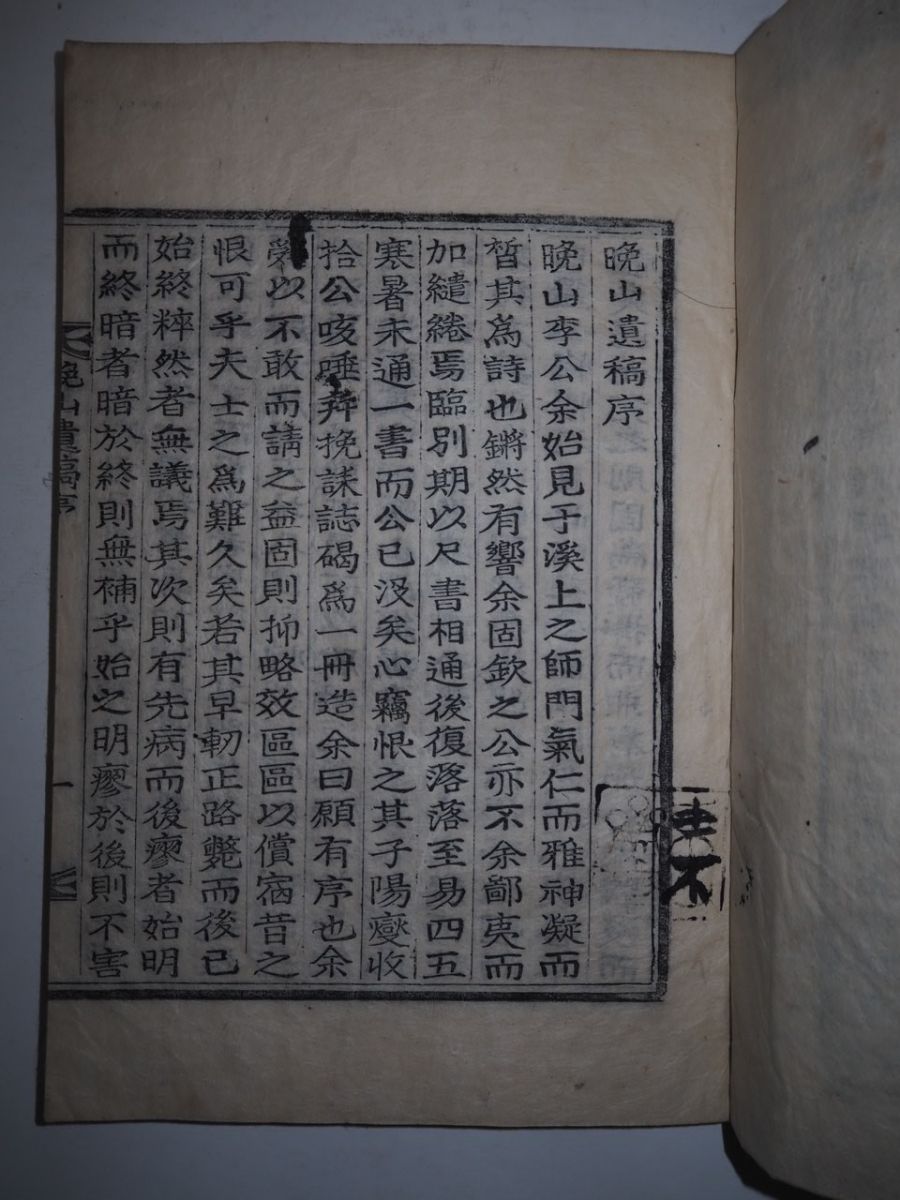 晚山遺稿序
晚山李公余始見于溪上之師門氣仁而雅神凝而
皙其爲詩也鏘然有響余固欽之公亦不余鄙夷而
加繾綣焉臨別期以尺書相通後復落落至易四五
寒暑未通一書而公已沒矣心竊恨之其子陽燮收
拾公咳唾幷挽誄誌碣爲一冊造余曰願有序也余
以不敢而請之益固則抑略效區區以償宿昔之
恨可乎夫士之爲難久矣若其早軔正路斃而後已
始終粹然者無議焉其次則有先病而後瘳者始明
而終暗者暗於終則無補乎始之明瘳於後則不害
晚山遺稿序
一